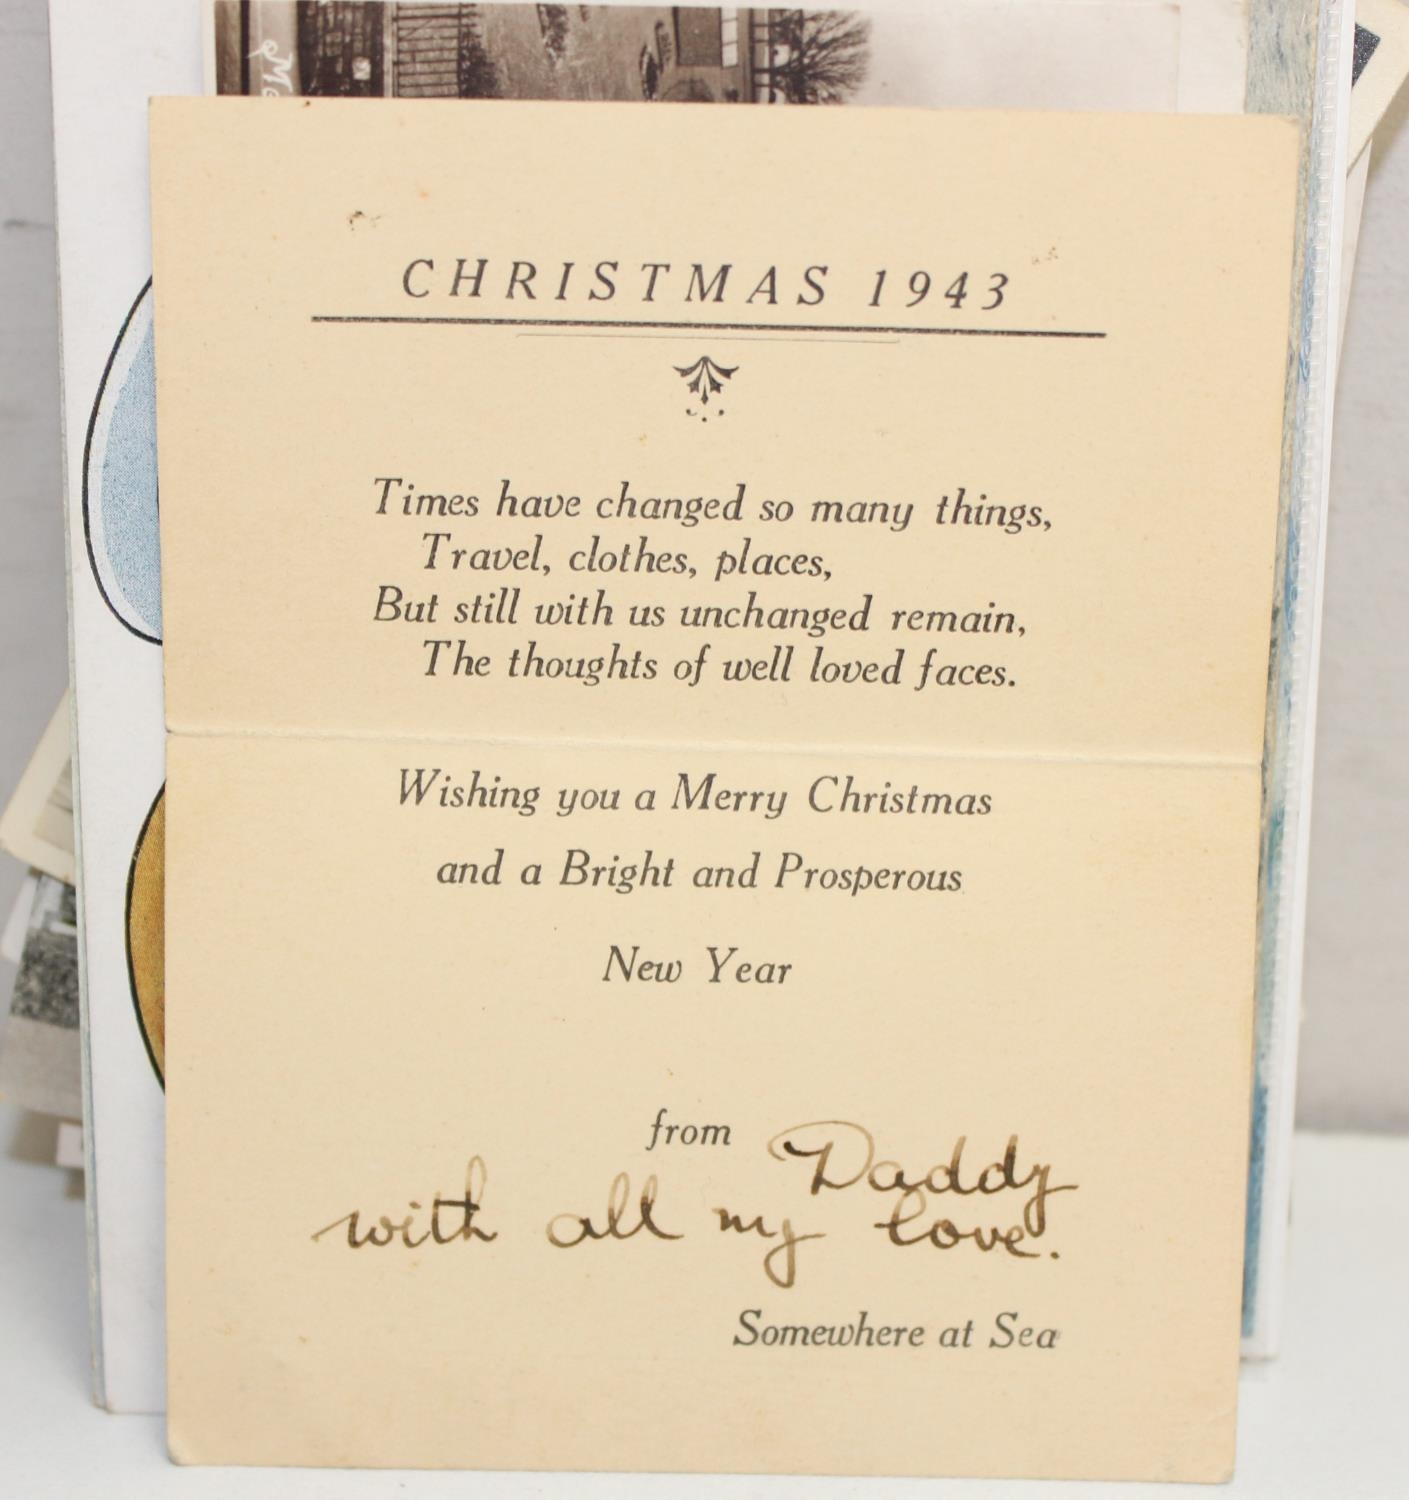 CHRISTMAS 1943
Times have changed so many things,
Travel, clothes, places,
But still with us unchanged remain,
The thoughts of well loved faces.
Wishing you a Merry Christmas
and a Bright and Prosperous
New Year
from Daddy
with all my love.
Somewhere at Sea